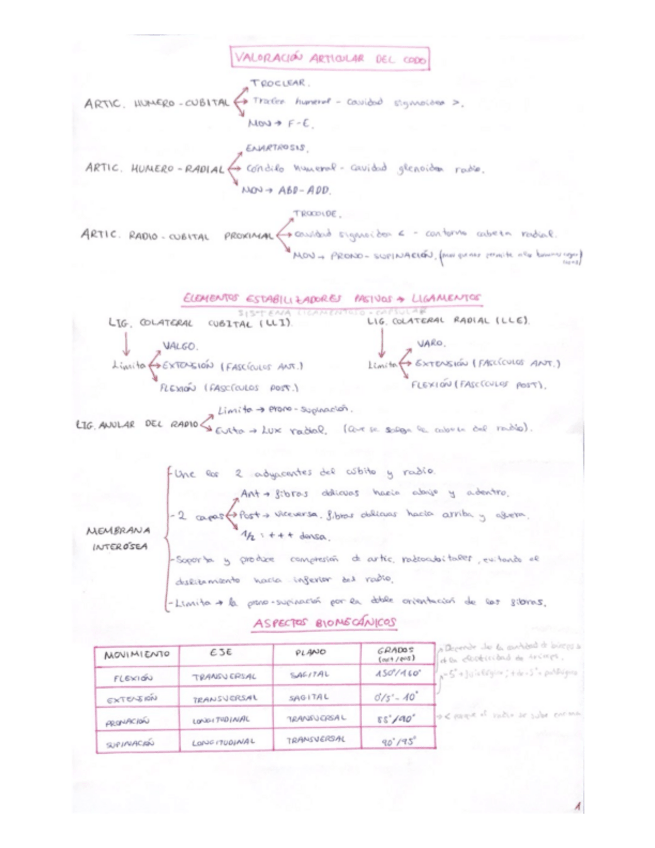 VALORACIÓN ARTICULAR DEL CODO
TROCLEAR.
ARTIC. HUMERO-CUBITAL Troclea humeral - cavidad sigmoidea >.
MOV → F-E.
ENARTROSIS.
ARTIC. HUMERO-RADIAL Cóndilo humeral - cavidad glenoidea radio.
MOV → ABD-ADD.
TROCOIDE.
ARTIC. RADIO-CUBITAL PROXIMAL cavidad sigmoidea < - contorno cabeza radial.
MOV → PRONO-SUPINACIÓN.
ELEMENTOS ESTABILIZADORES PASIVOS → LIGAMENTOS
SISTEMA LIGAMENTOSO-CAPSULAR
LIG. COLATERAL CUBITAL (LLI). LIG. COLATERAL RADIAL (LLE).
VALGO. VARO.
Limita EXTENSIÓN (FASCÍCULOS ANT.) Limita EXTENSIÓN (FASCÍCULOS ANT.)
FLEXIÓN (FASCÍCULOS POST.) FLEXIÓN (FASCÍCULOS POST).
Limita → prono-supinación.
LIG. ANULAR DEL RADIO
Evita → Lux radial. (Que se salga la cabeza del radio).
Une los 2 adyacentes del cúbito y radio.
Ant → fibras oblicuas hacia abajo y adentro.
- 2 capas Post → viceversa, fibras oblicuas hacia arriba y afuera.
1/2 : +++ densa.
MEMBRANA
INTERÓSEA
- Soporta y produce compresión de artic. radiocubitales, evitando el
deslizamiento hacia inferior del radio.
- Limita → la prono-supinación por la doble orientación de las fibras.
ASPECTOS BIOMECÁNICOS
MOVIMIENTO EJE PLANO GRADOS
(act/pas)
FLEXIÓN TRANSVERSAL SAGITAL 150°/160°
EXTENSIÓN TRANSVERSAL SAGITAL 0/5°-10°
PRONACIÓN LONGITUDINAL TRANSVERSAL 85°/90°
SUPINACIÓN LONGITUDINAL TRANSVERSAL 90°/95°
1